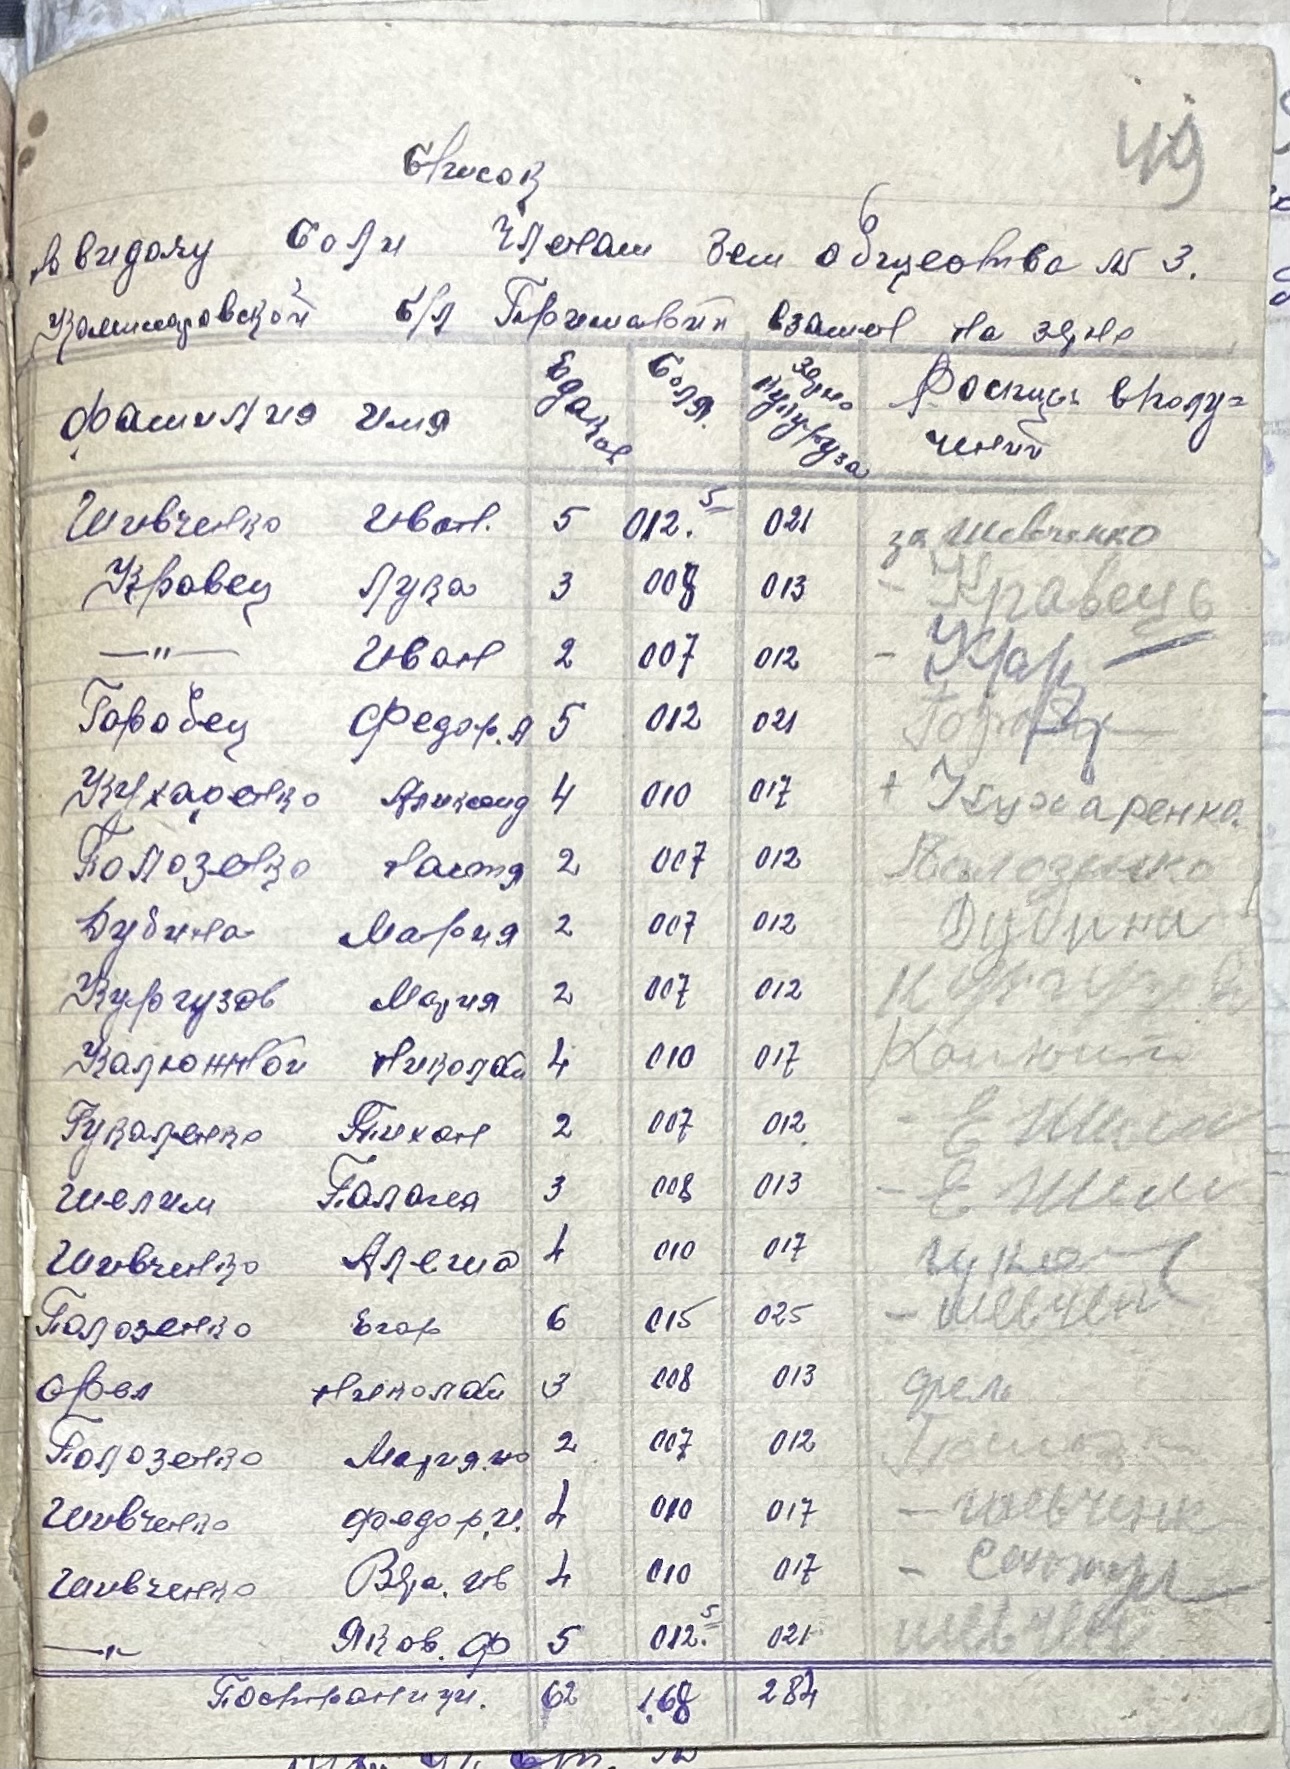 49
Список
на видачу Соли Членам Зем общества № 3.
Комиссаровской с/с взамен на зерно
фамилия имя Едаков Соля. Зерно кукуруза Роспись вполу=
чении
Шивченко Иван. 5 012.5 021 за Шевченко
Кравец Лука 3 008 013 - Кравець
—"— Иван 2 007 012 - Кра
Горобец Федор. А 5 012 021
Кухаренко Александ 4 010 017 + Кухаренка
Полозенко Настя 2 007 012 Полозенко
Дубина Мария 2 007 012 Дубина
Кургузов Мария 2 007 012
Калюжной Николай 4 010 017
Гукаленко Тихон 2 007 012 - Е
Шелим Палагея 3 008 013 - Е Шели
Шивченко Алегша 4 010 017
Полозенко Егор 6 015 025 - шевчен
Орел Николай 3 008 013 Орель
Полозенко Мария.но 2 007 012
Шивченко Федор.и. 4 010 017 - шевченк
Шивченко ив 4 010 017 -
—"— Яков. Ф 5 012.5 021 шевчен
Построниции. 62 1.68 284